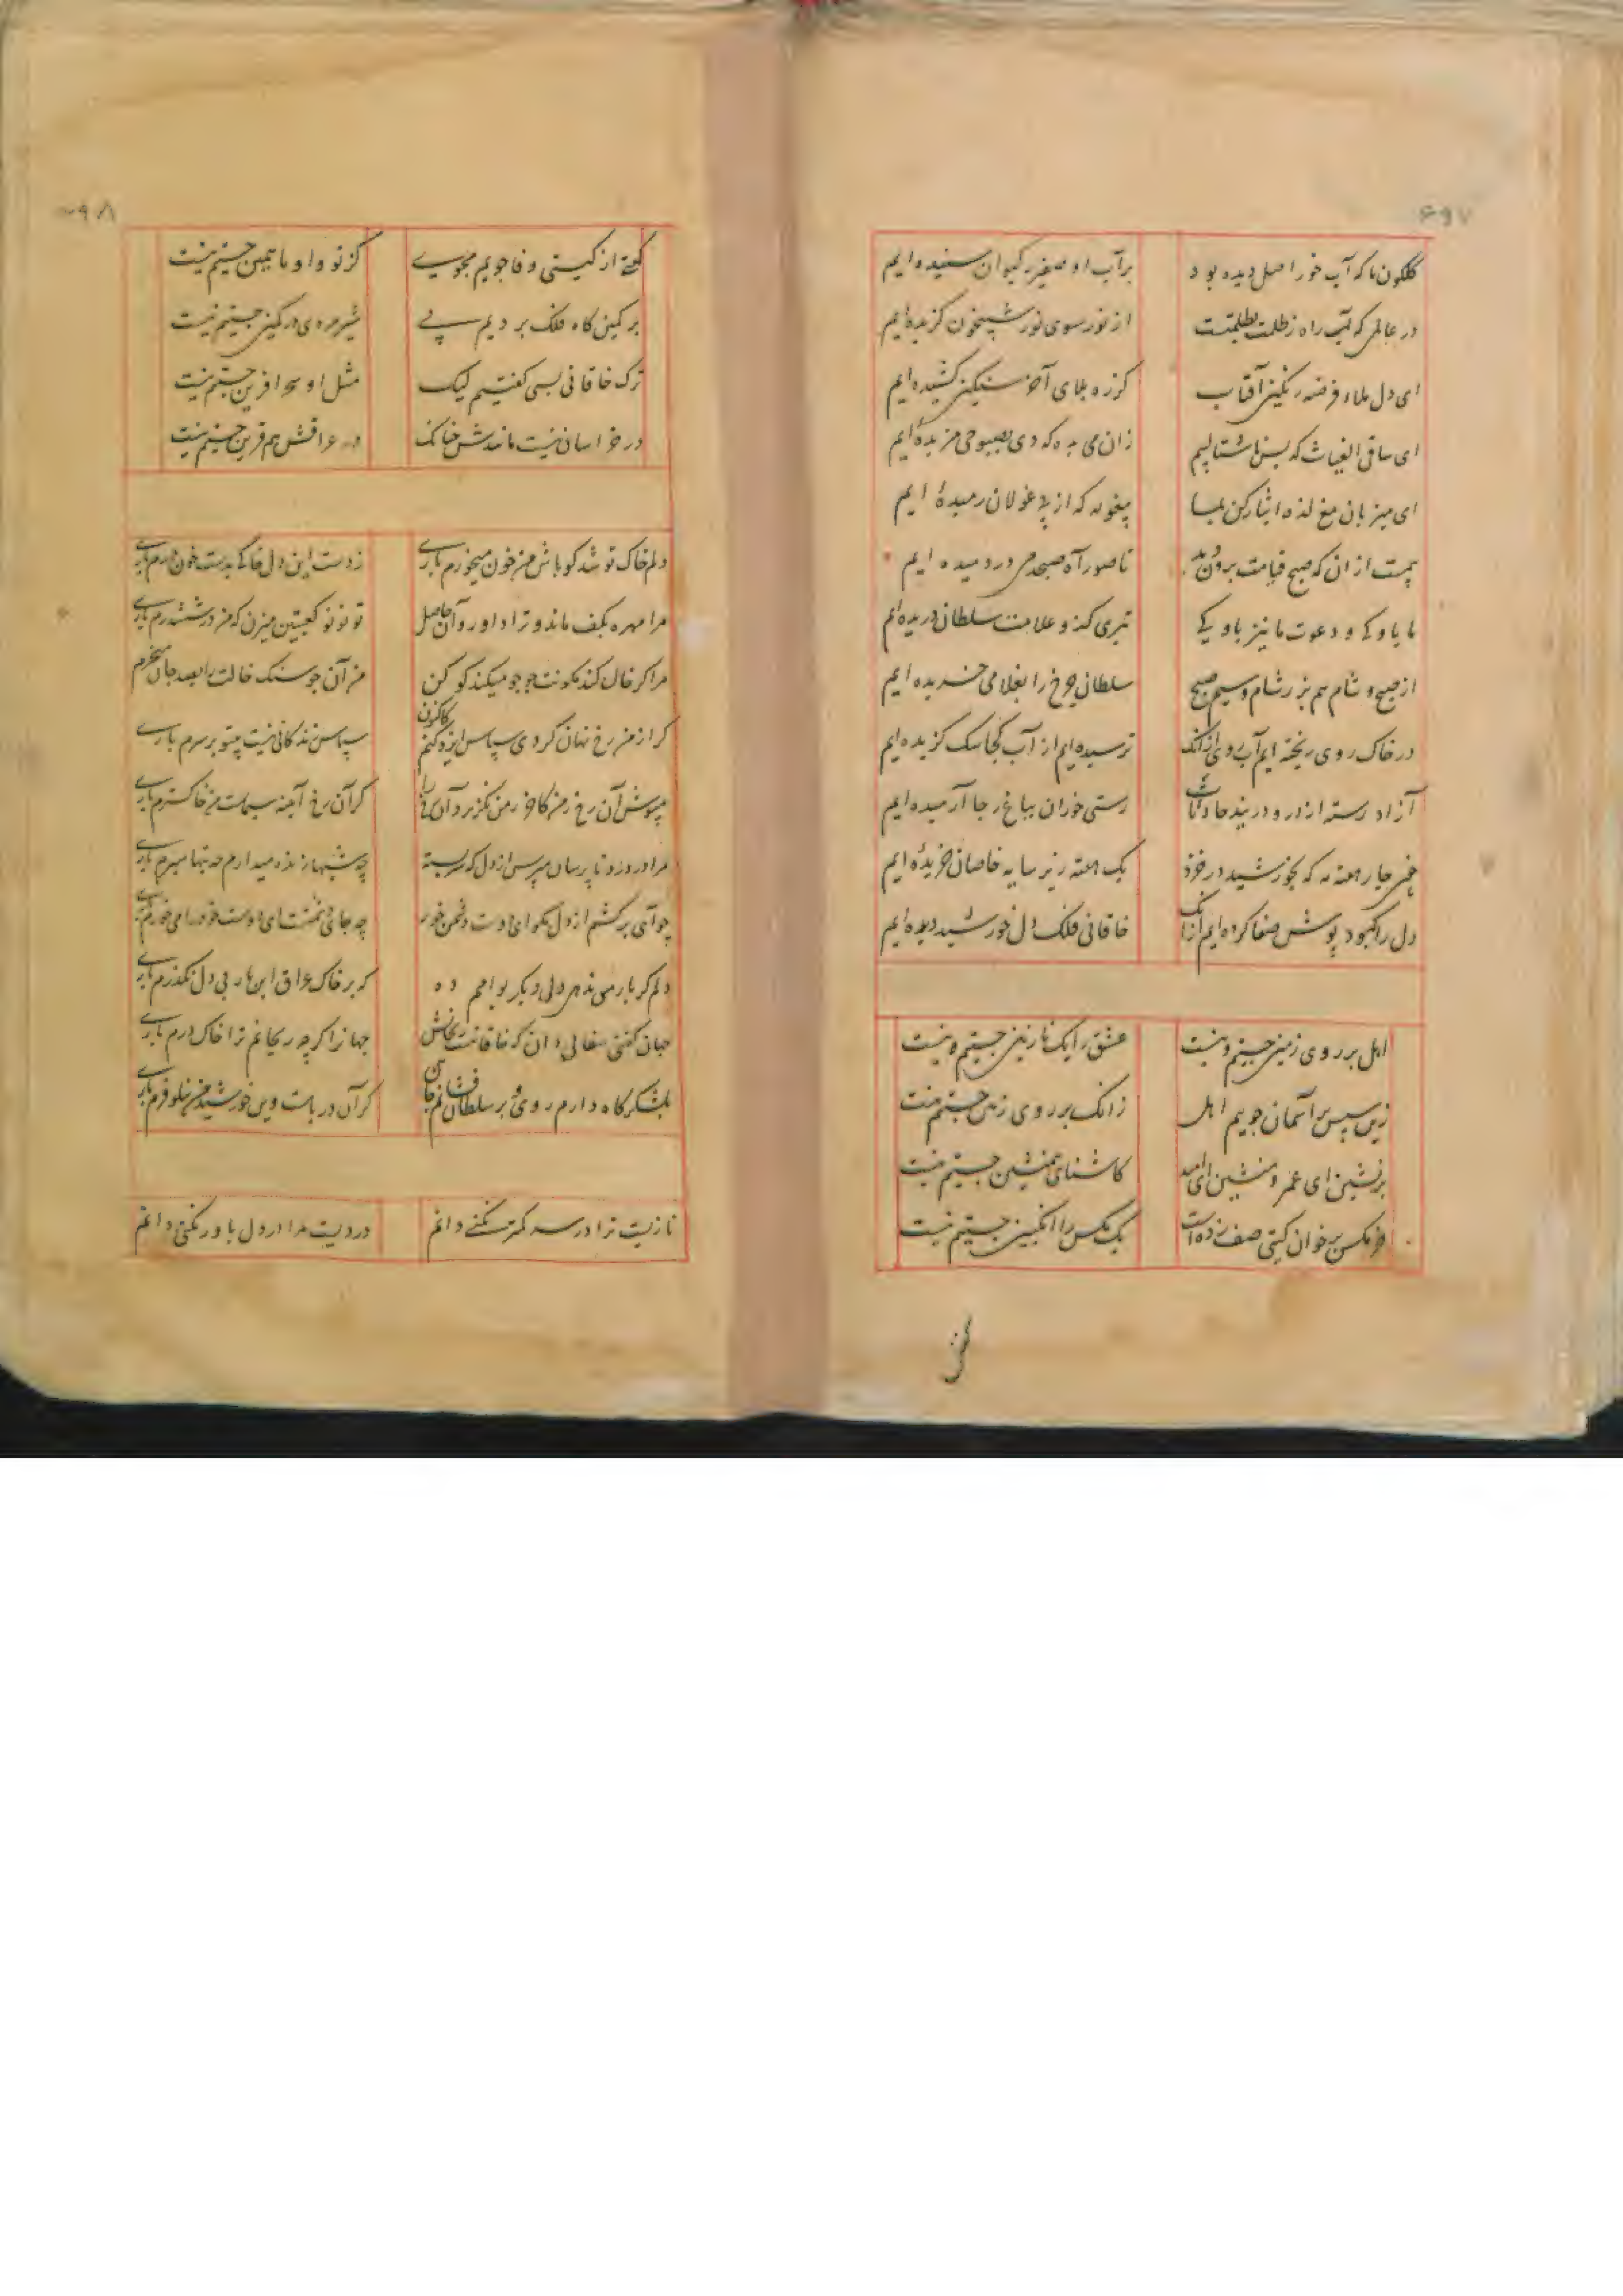 ۶۹۷
گلگون ما که آب خور اصل دیده بود
بر آب او صفیر کیوان شنیده ایم
در عالمی که راه ز ظلمت بظلمتست
از نور سوی نور شبیخون گزیده ایم
ای دل صلا قرصه رنگین آفتاب
ای ساقی الغیاث که بس ناشتا لبیم
زان می بده که دی بصبوحی مزیده ایم
ای میزبان میکده ایثار کن بما
پیغوله که از پی غولان رمیده ایم
پیش از آن که صبح قیامت برون دمد
تا صور آه صبحدمی در دمیده ایم
ما یاوگی و دعوت ما نیز یاوگی
تیری کژ و علامت سلطان دریده ایم
از صبح و شام هم بزر شام و سیم صبح
سلطان چرخ را بغلامی خریده ایم
در خاک روی ریخته ایم آب روی از آنک
ترسیده ایم از آب که ما سگ گزیده ایم
آزاد رسته از در و دربند حادثات
رستی خوران بباغ رجا آرمیده ایم
نی چار هفته مه که بخورشید درخزد
یک هفته زیر سایه خاصان خزیده ایم
دل را کبود پوش صفا کرده ایم از آنک
خاقانی فلک دل خورشید دیده ایم
اهل بر روی زمین جستیم و نیست
عشق را یک نازنین جستیم و نیست
زین سپس بر آسمان جوییم اهل
زانک بر روی زمین جستیم نیست
برنشین ای عمر و منشین ای امید
کاشنای همنشین جستیم نیست
خرمگس بر خوان گیتی صف زده است
یک مگس را انگبین جستیم نیست
۶۹۸
گفتی از گیتی وفا جویم مجوی
کز تو و او ما همین جستیم نیست
بر کمین گاه فلک بردیم پی
شیر مردی در کمین جستیم نیست
ترک خاقانی بسی گفتیم لیک
مثل او سحر آفرین جستیم نیست
در خراسان نیست مانندش چنانک
در عراقش هم قرین جستیم نیست
دلم خاک تو شد گو باش من خون میخورم باری
ز دست این دل خاکی بدست خون درم باری
مرا مهره بکف ماند و ترا داو روان حاصل
تو نو نو کعبتین میزن که من در ششدرم باری
مرا گر خال گندمگونت جو جو میکند گو کن
من آن جو سنگ خالت را بصد جان میخرم
گر از من رخ نهان کردی سپاس ایزد کنم کاکنون
سپاس زندگانی نیست بیتو بر سرم باری
مپوش آن رخ ز من کاخر ز من نگزیرد آن رخ را
گر آن رخ آینه سیماست من خاکسترم باری
مرا در درد ناپرسان مپرس از دل که رسته
چه شبها زنده میدارم چه تبها میبرم باری
چو آیی برکشم از دل مگو ای دوست دشمن خور
چه جای دشمنست ای دوست خود را می خورم باری
دلم گر باز می ندهی دلی دیگر بوامم ده
که بر خاک عراق این بار بی دل نگذرم باری
جهان گفتی سفالی دان که خاقانیست ریحانش
جهانرا گر چه ریحانم ترا خاک درم باری
بلشکرگاه دارم روی و بر سلطان فشانم جان
گر آن دریاست وین خورشید من نیلوفرم باری
نازیست ترا در سر کمتر نکنی دانم
دردیست مرا در دل باور نکنی دانم